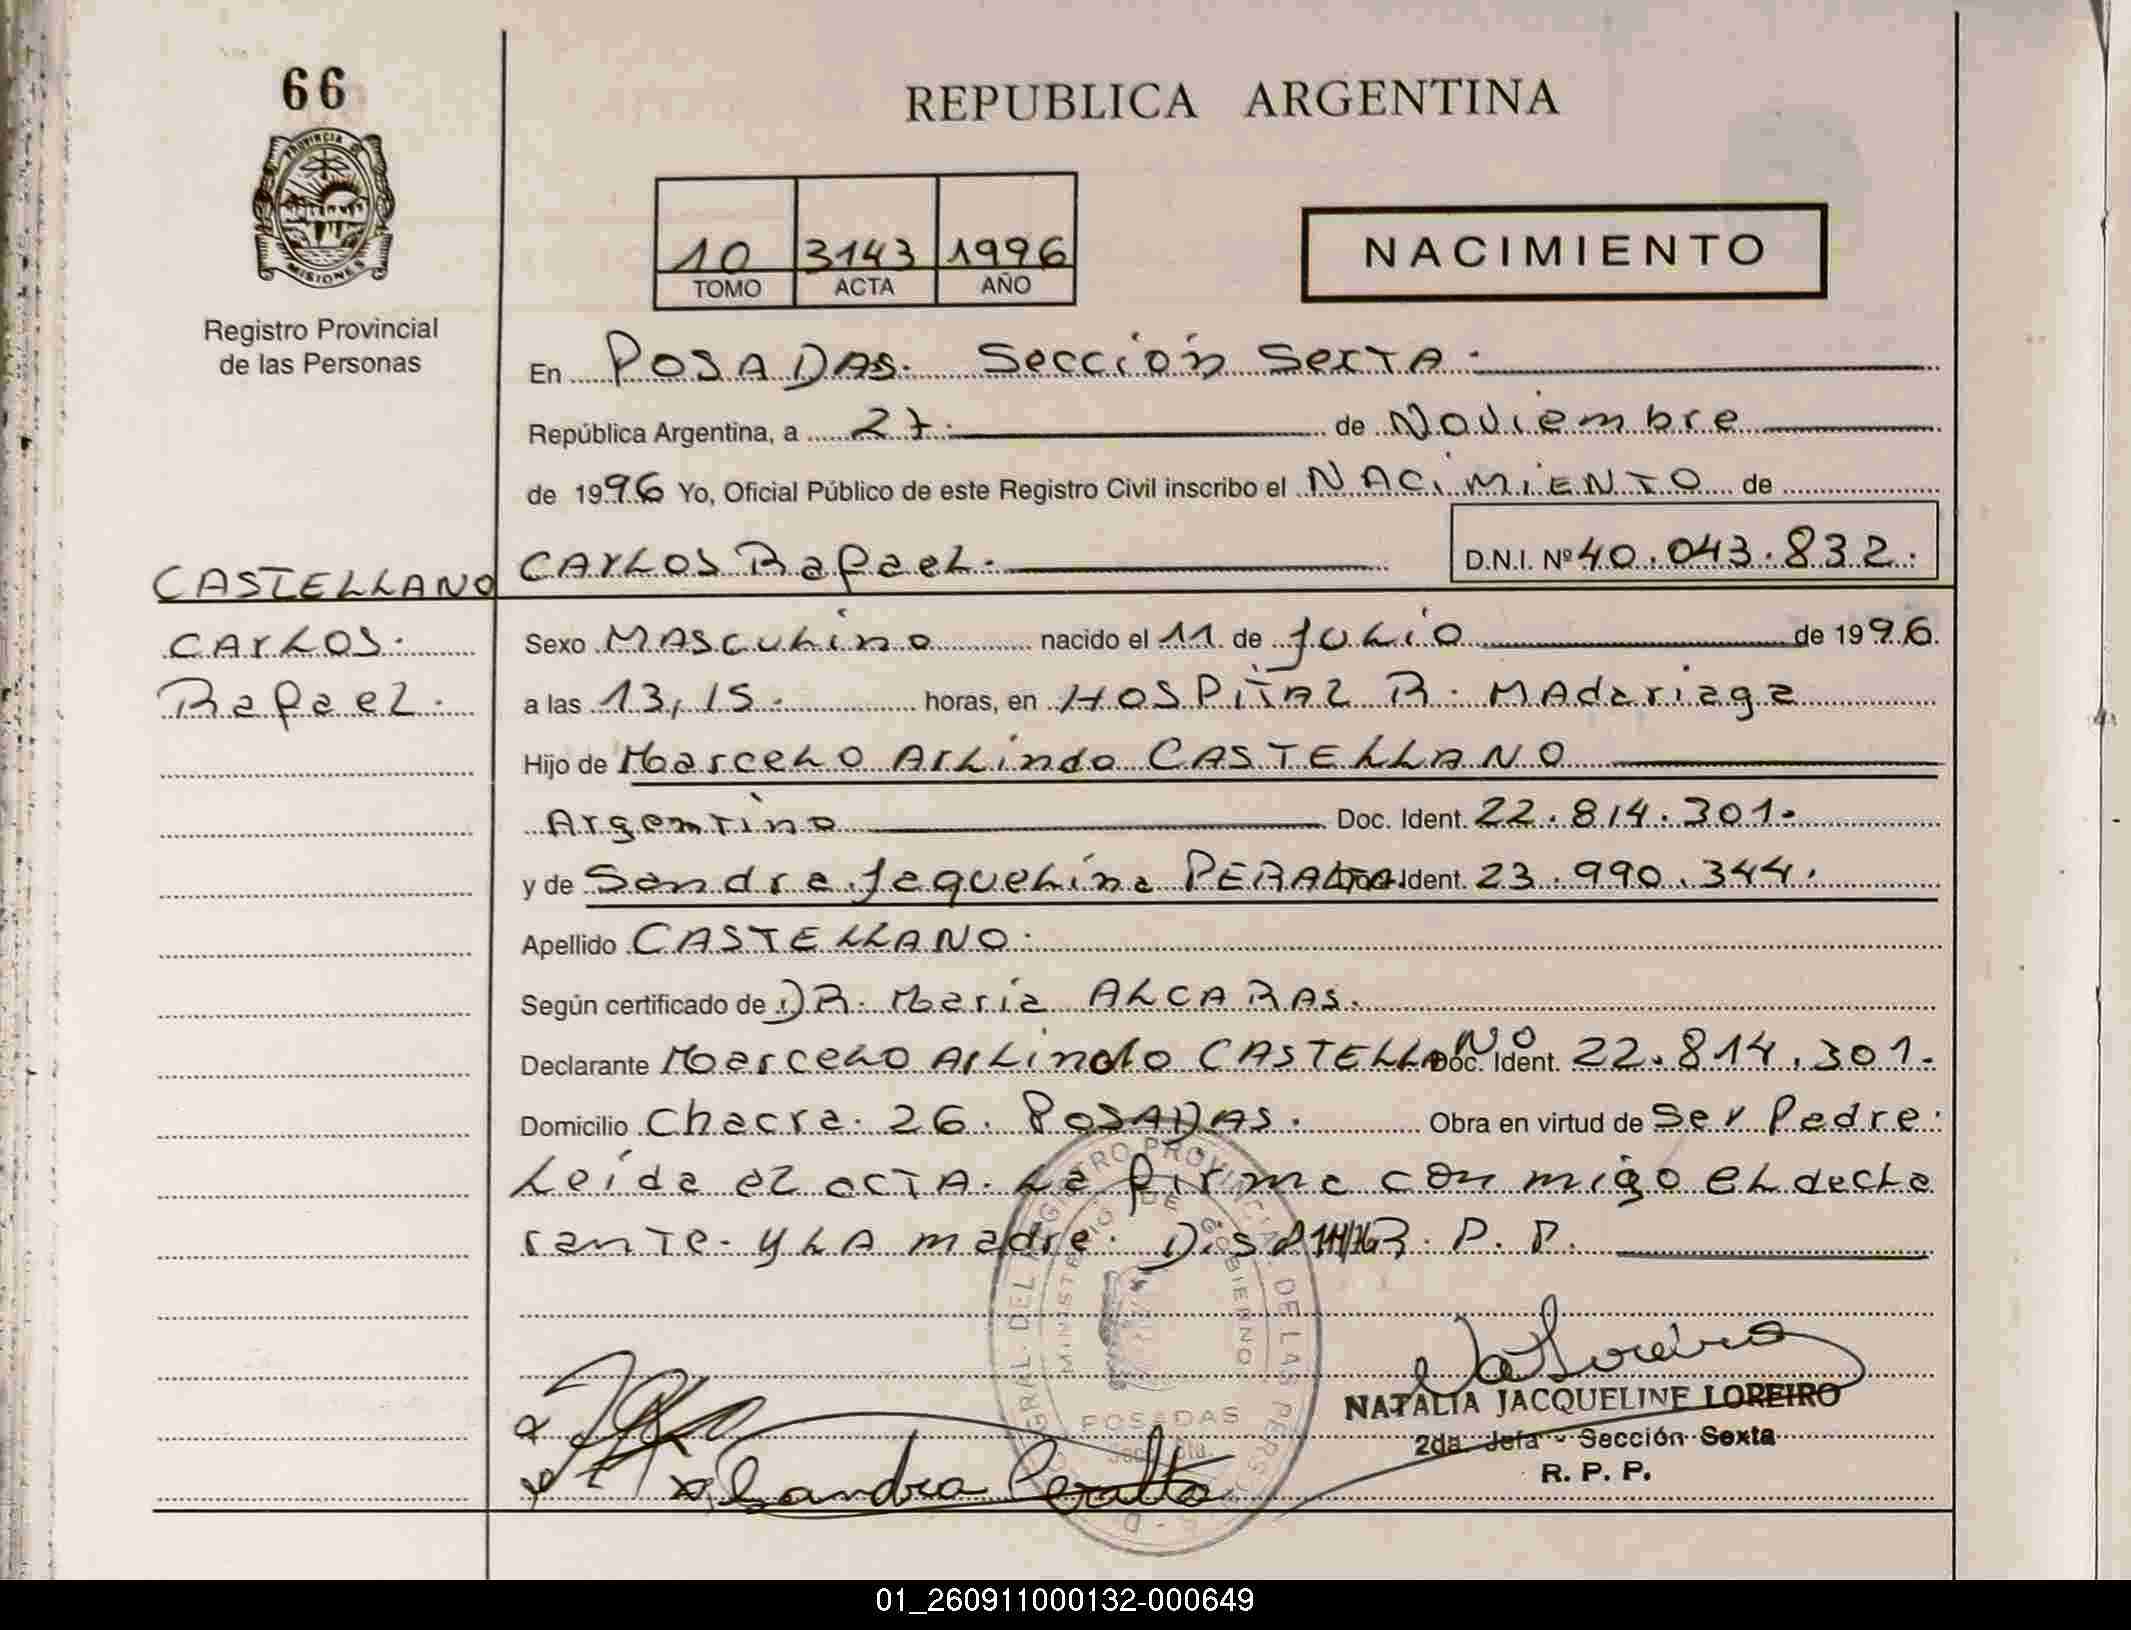 66
PROVINCIA DE
MISIONES
Registro Provincial
de las Personas
REPUBLICA ARGENTINA
10 3143 1996
TOMO ACTA AÑO
NACIMIENTO
En POSADAS. Sección Sexta.
República Argentina, a 27. de Noviembre
de 1996 Yo, Oficial Público de este Registro Civil inscribo el NACIMIENTO de
CARLOS Rafael. D.N.I. Nº 40.043.832.
CASTELLANO
CARLOS.
Rafael.
Sexo MASCULINO nacido el 11 de JULIO de 1996.
a las 13,15. horas, en HOSPITAL R. MADARIAGA
Hijo de Marcelo Arlindo CASTELLANO
Argentino Doc. Ident. 22.814.301.
y de Sandra Jaquelina PERALTA Doc. Ident. 23.990.344.
Apellido CASTELLANO.
Según certificado de DR. María ALCARAS.
Declarante Marcelo Arlindo CASTELLANO Doc. Ident. 22.814.301.
Domicilio Chacra. 26. POSADAS. Obra en virtud de Ser Padre.
Leída el acta. La firma conmigo el decla
rante. y la madre. P. P.
DEL REGISTRO PROVINCIAL DE LAS PERSONAS
MINISTERIO DE GOBIERNO
POSADAS
Loreiro
NATALIA JACQUELINE LOREIRO
2da. Jefa - Sección Sexta
R. P. P.
Sandra Peralta
01_260911000132-000649